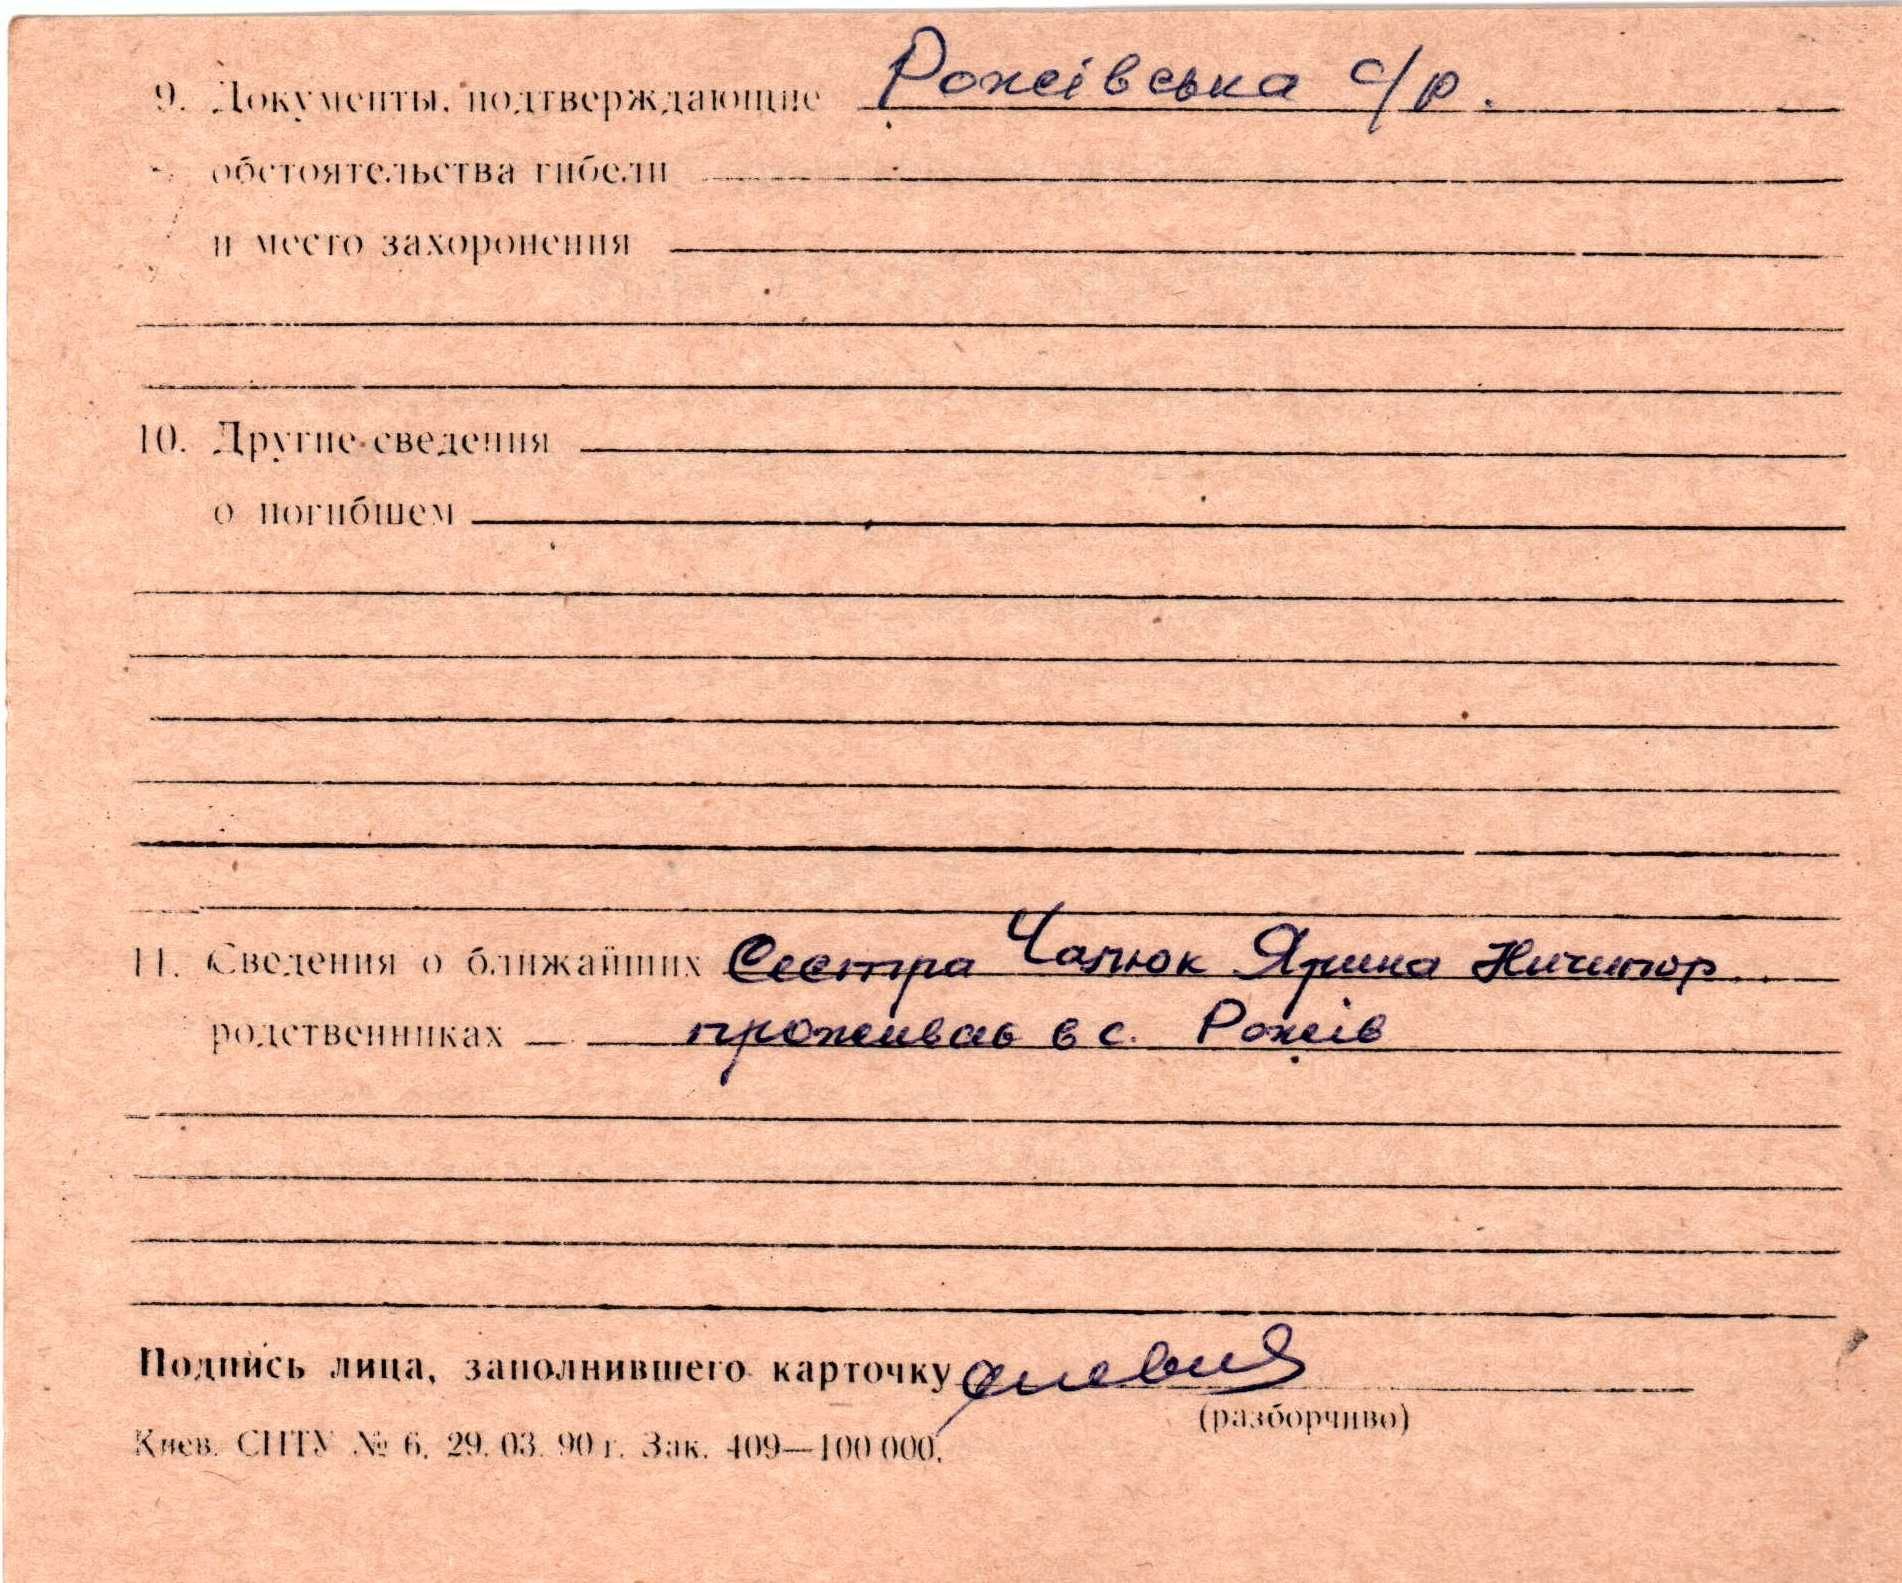 9. Документы, подтверждающие Рожівська с/р.
обстоятельства гибели
и место захоронения
10. Другие сведения
о погибшем
11. Сведения о ближайших Сестра Чалюк Ярина Ничипор
родственниках проживає в с. Рожів
Подпись лица, заполнившего карточку
(разборчиво)
Киев. СПТУ № 6. 29. 03. 90 г. Зак. 409—100 000.